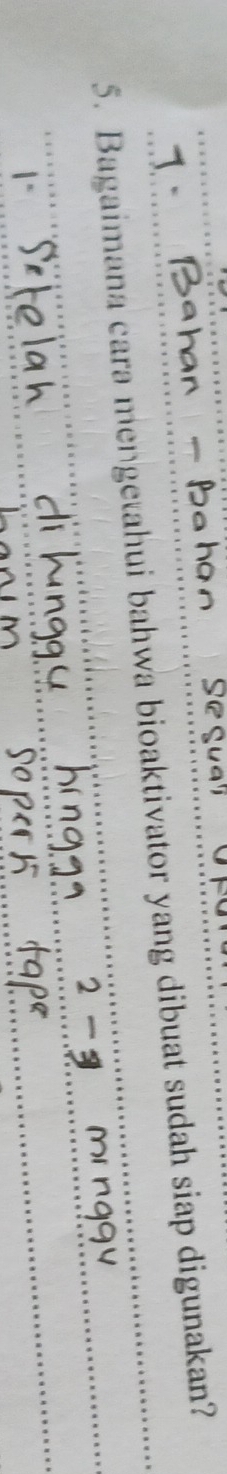 7. Bahan - Bahan sesuai
5. Bagaimana cara mengetahui bahwa bioaktivator yang dibuat sudah siap digunakan?
1. Setelah ditunggu hingga 2 - 3 minggu
harum seperti tape